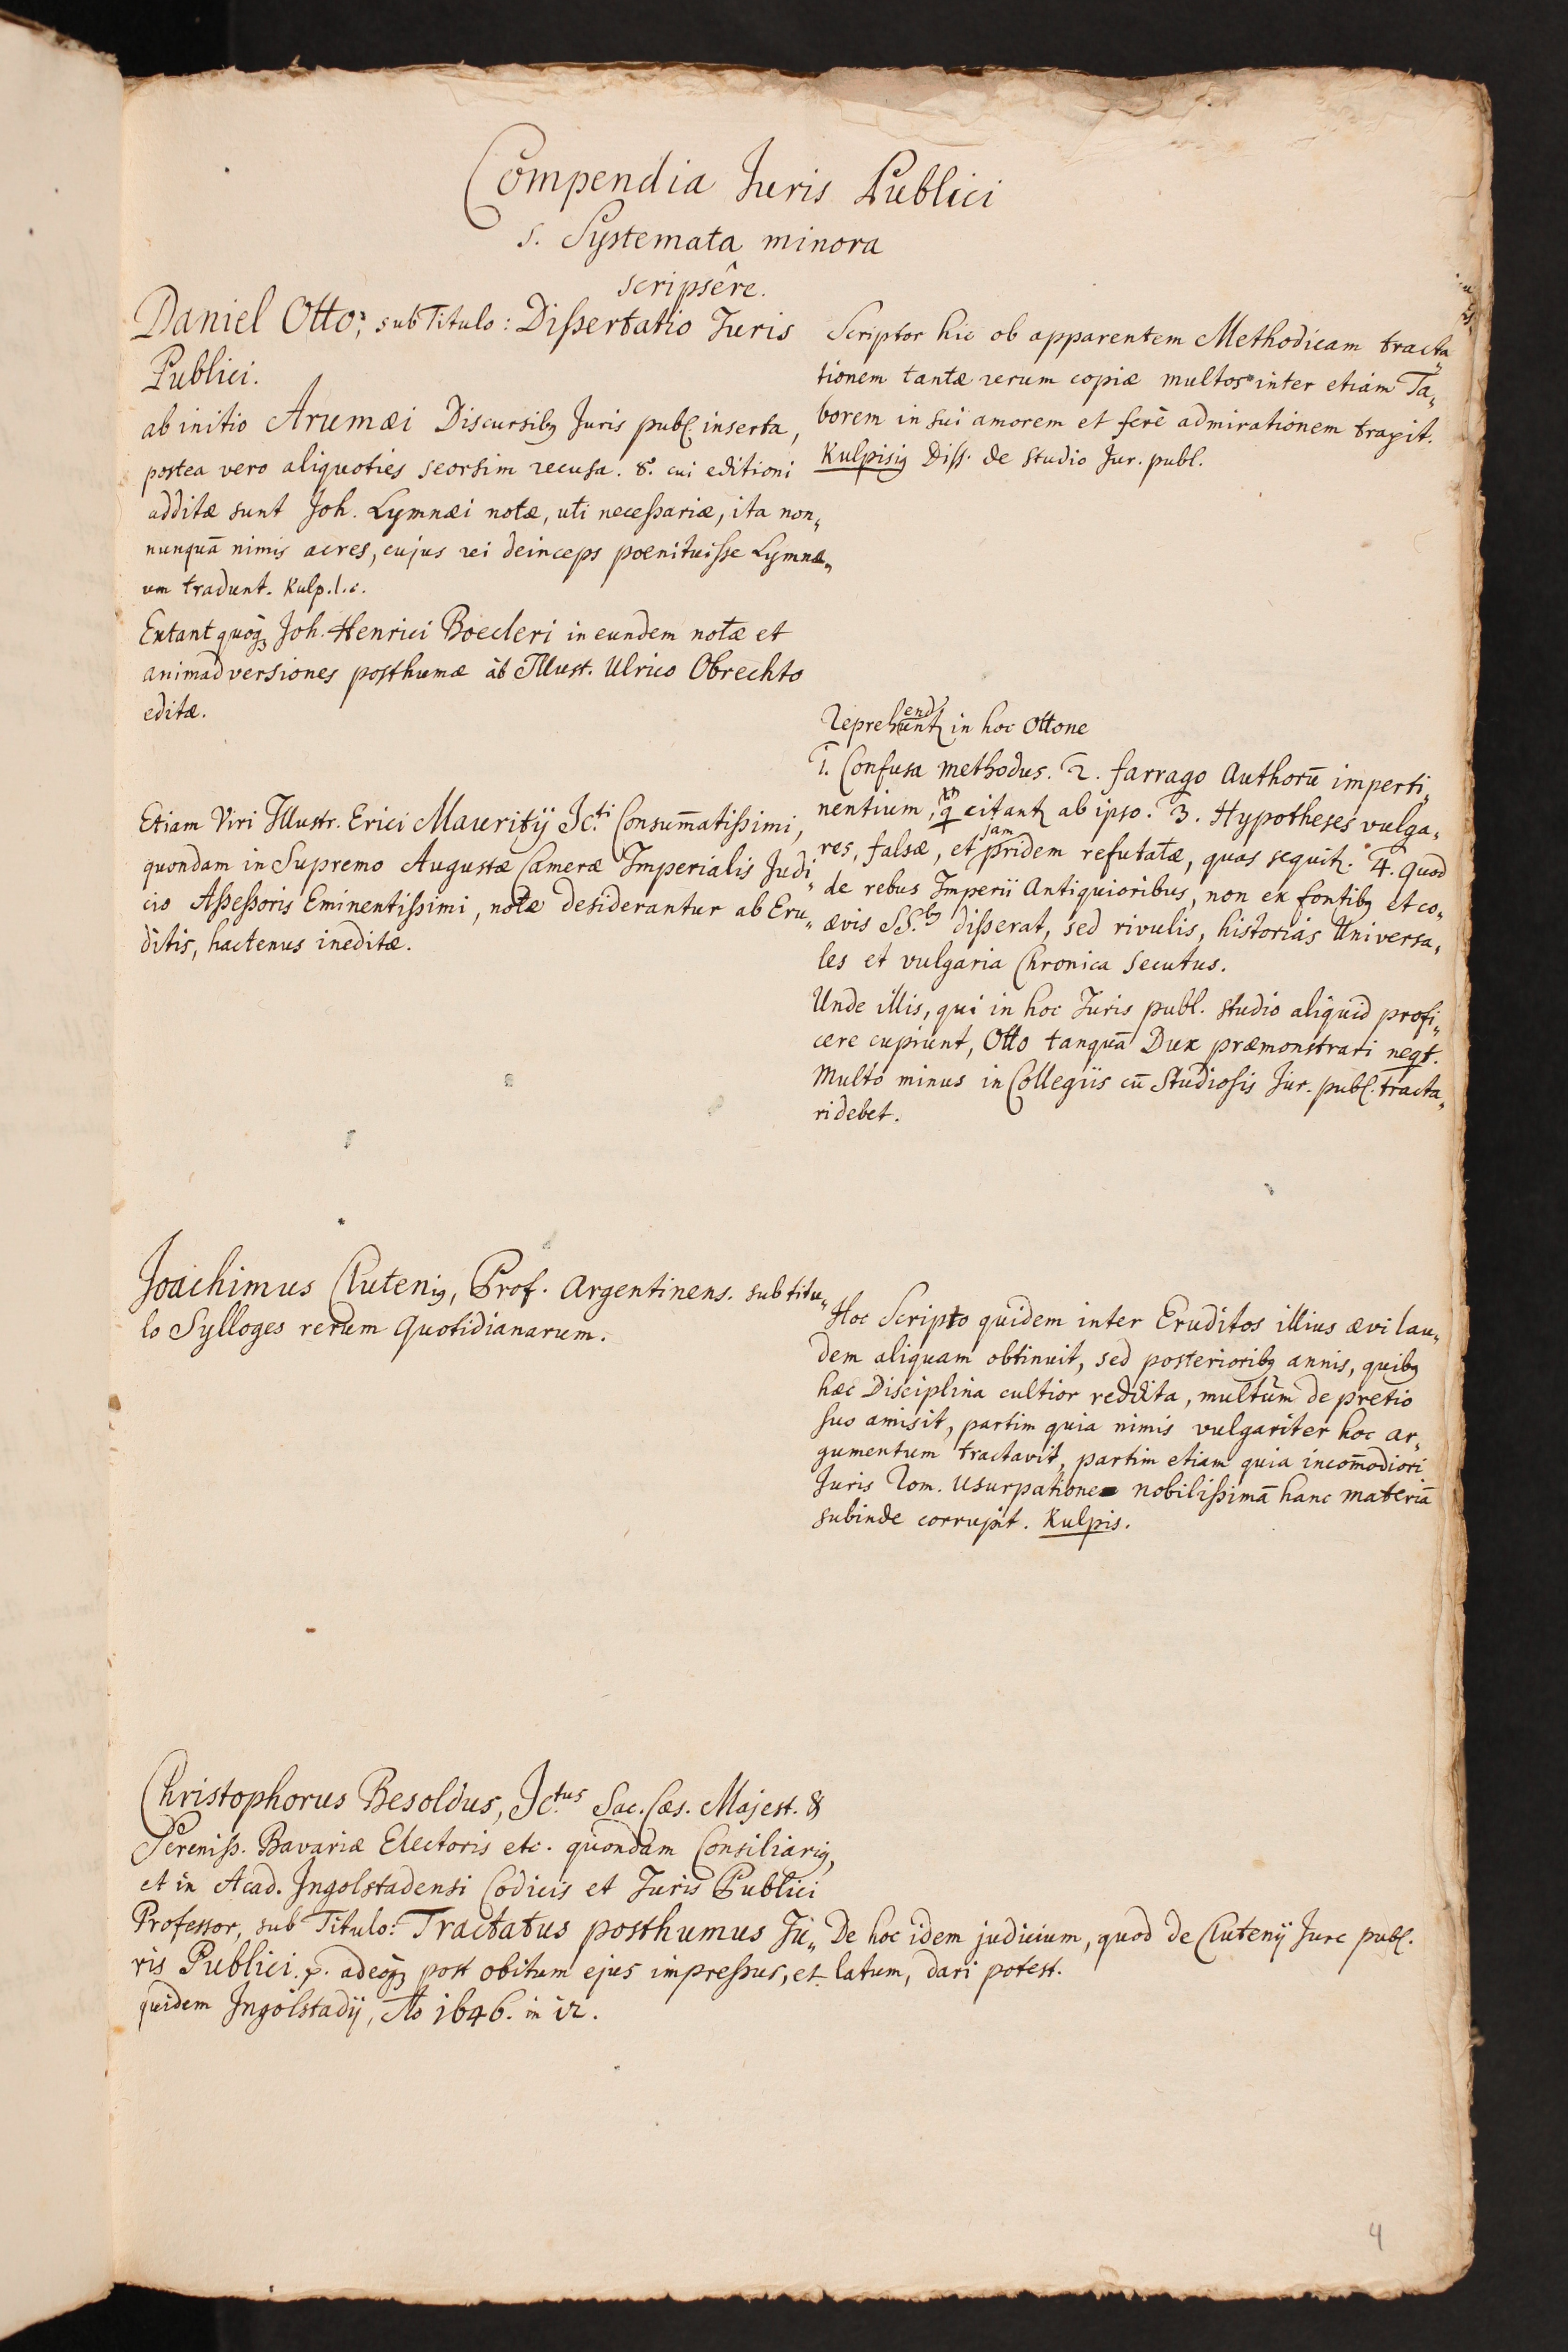 Compendia Juris Publici
s. Systemata minora
scripsêre.
Daniel Otto, sub Titulo: Dißertatio Juris
Publici.
ab initio Arumæi Discursibꝰ Juris publ. inserta,
postea vero aliquoties seorsim recusa. 8º. cui editioni
additæ sunt Joh. Lymnæi notæ, uti neceßariæ, ita non„
nunquā nimis acres, cujus rei deinceps poenituisse Lymnæ„
um tradunt. Kulp. l. c.
Extant quoq; Joh. Henrici Boecleri in eundem notæ et
animadversiones posthumæ ab Illust. Ulrico Obrechto
editæ.
Etiam Viri Illustr. Erici Mauritij JC.ti Consum̄atißimi,
quondam in Supremo Augustæ Cameræ Imperialis Judi„
cio Aßeßoris Eminentißimi, notæ desiderantur ab Eru„
ditis, hactenus ineditæ.
Joachimus Clutenꝰ, Prof. Argentinens. sub titu„
lo Sylloges rerum Quotidianarum.
Christophorus Besoldus, JC.tus Sac. Cæs. Majest. &
Sereniß. Bavariæ Electoris etc. quondam Consiliarꝰ,
et in Acad. Jngolstadensi Codicis et Juris Publici
Professor, sub Titulo: Tractatus posthumus Ju„
ris Publici. p. adeoq; post obitum ejus impreßus, et
quidem Jngolstadij, Ao 1646. in 12.
Scriptor hic ob apparentem Methodicam tracta„
tionem tantæ rerum copiæ multos inter etiam Ta„
borem in sui amorem et ferè admirationem traxit.
Kulpisiꝰ Diss. de studio Jur. publ.
Reprehendunt in hoc Ottone
1. Confusa methodus. 2. farrago Authorū imperti„
nentium, q citant ab ipso. 3. Hypotheses vulga„
res, falsæ, et jam pridem refutatæ, quas sequit. 4. Quod
de rebus Imperii Antiquioribus, non ex fontibꝰ et co„
ævis SS.bꝰ dißerat, sed rivulis, historias Universa„
les et vulgaria Chronica secutus.
Unde illis, qui in hoc Juris publ. studio aliquid profi„
cere cupiunt, Otto tanquā Dux præmonstrari neqt.
Multo minus in Collegiis cū Studiosis Jur. publ. tracta„
ri debet.
Hoc Scripto quidem inter Eruditos illius ævi lau„
dem aliquam obtinuit, sed posterioribꝰ annis, quibꝰ
hæc Disciplina cultior reddita, multùm de pretio
suo amisit, partim quia nimis vulgariter hoc ar„
gumentum tractavit, partim etiam quia incom̄odiori
Juris Rom. usurpatione nobilißimā hanc materiā
subinde corrupit. Kulpis.
De hoc idem judicium, quod de Clutenij Jure publ.
latum, dari potest.
4